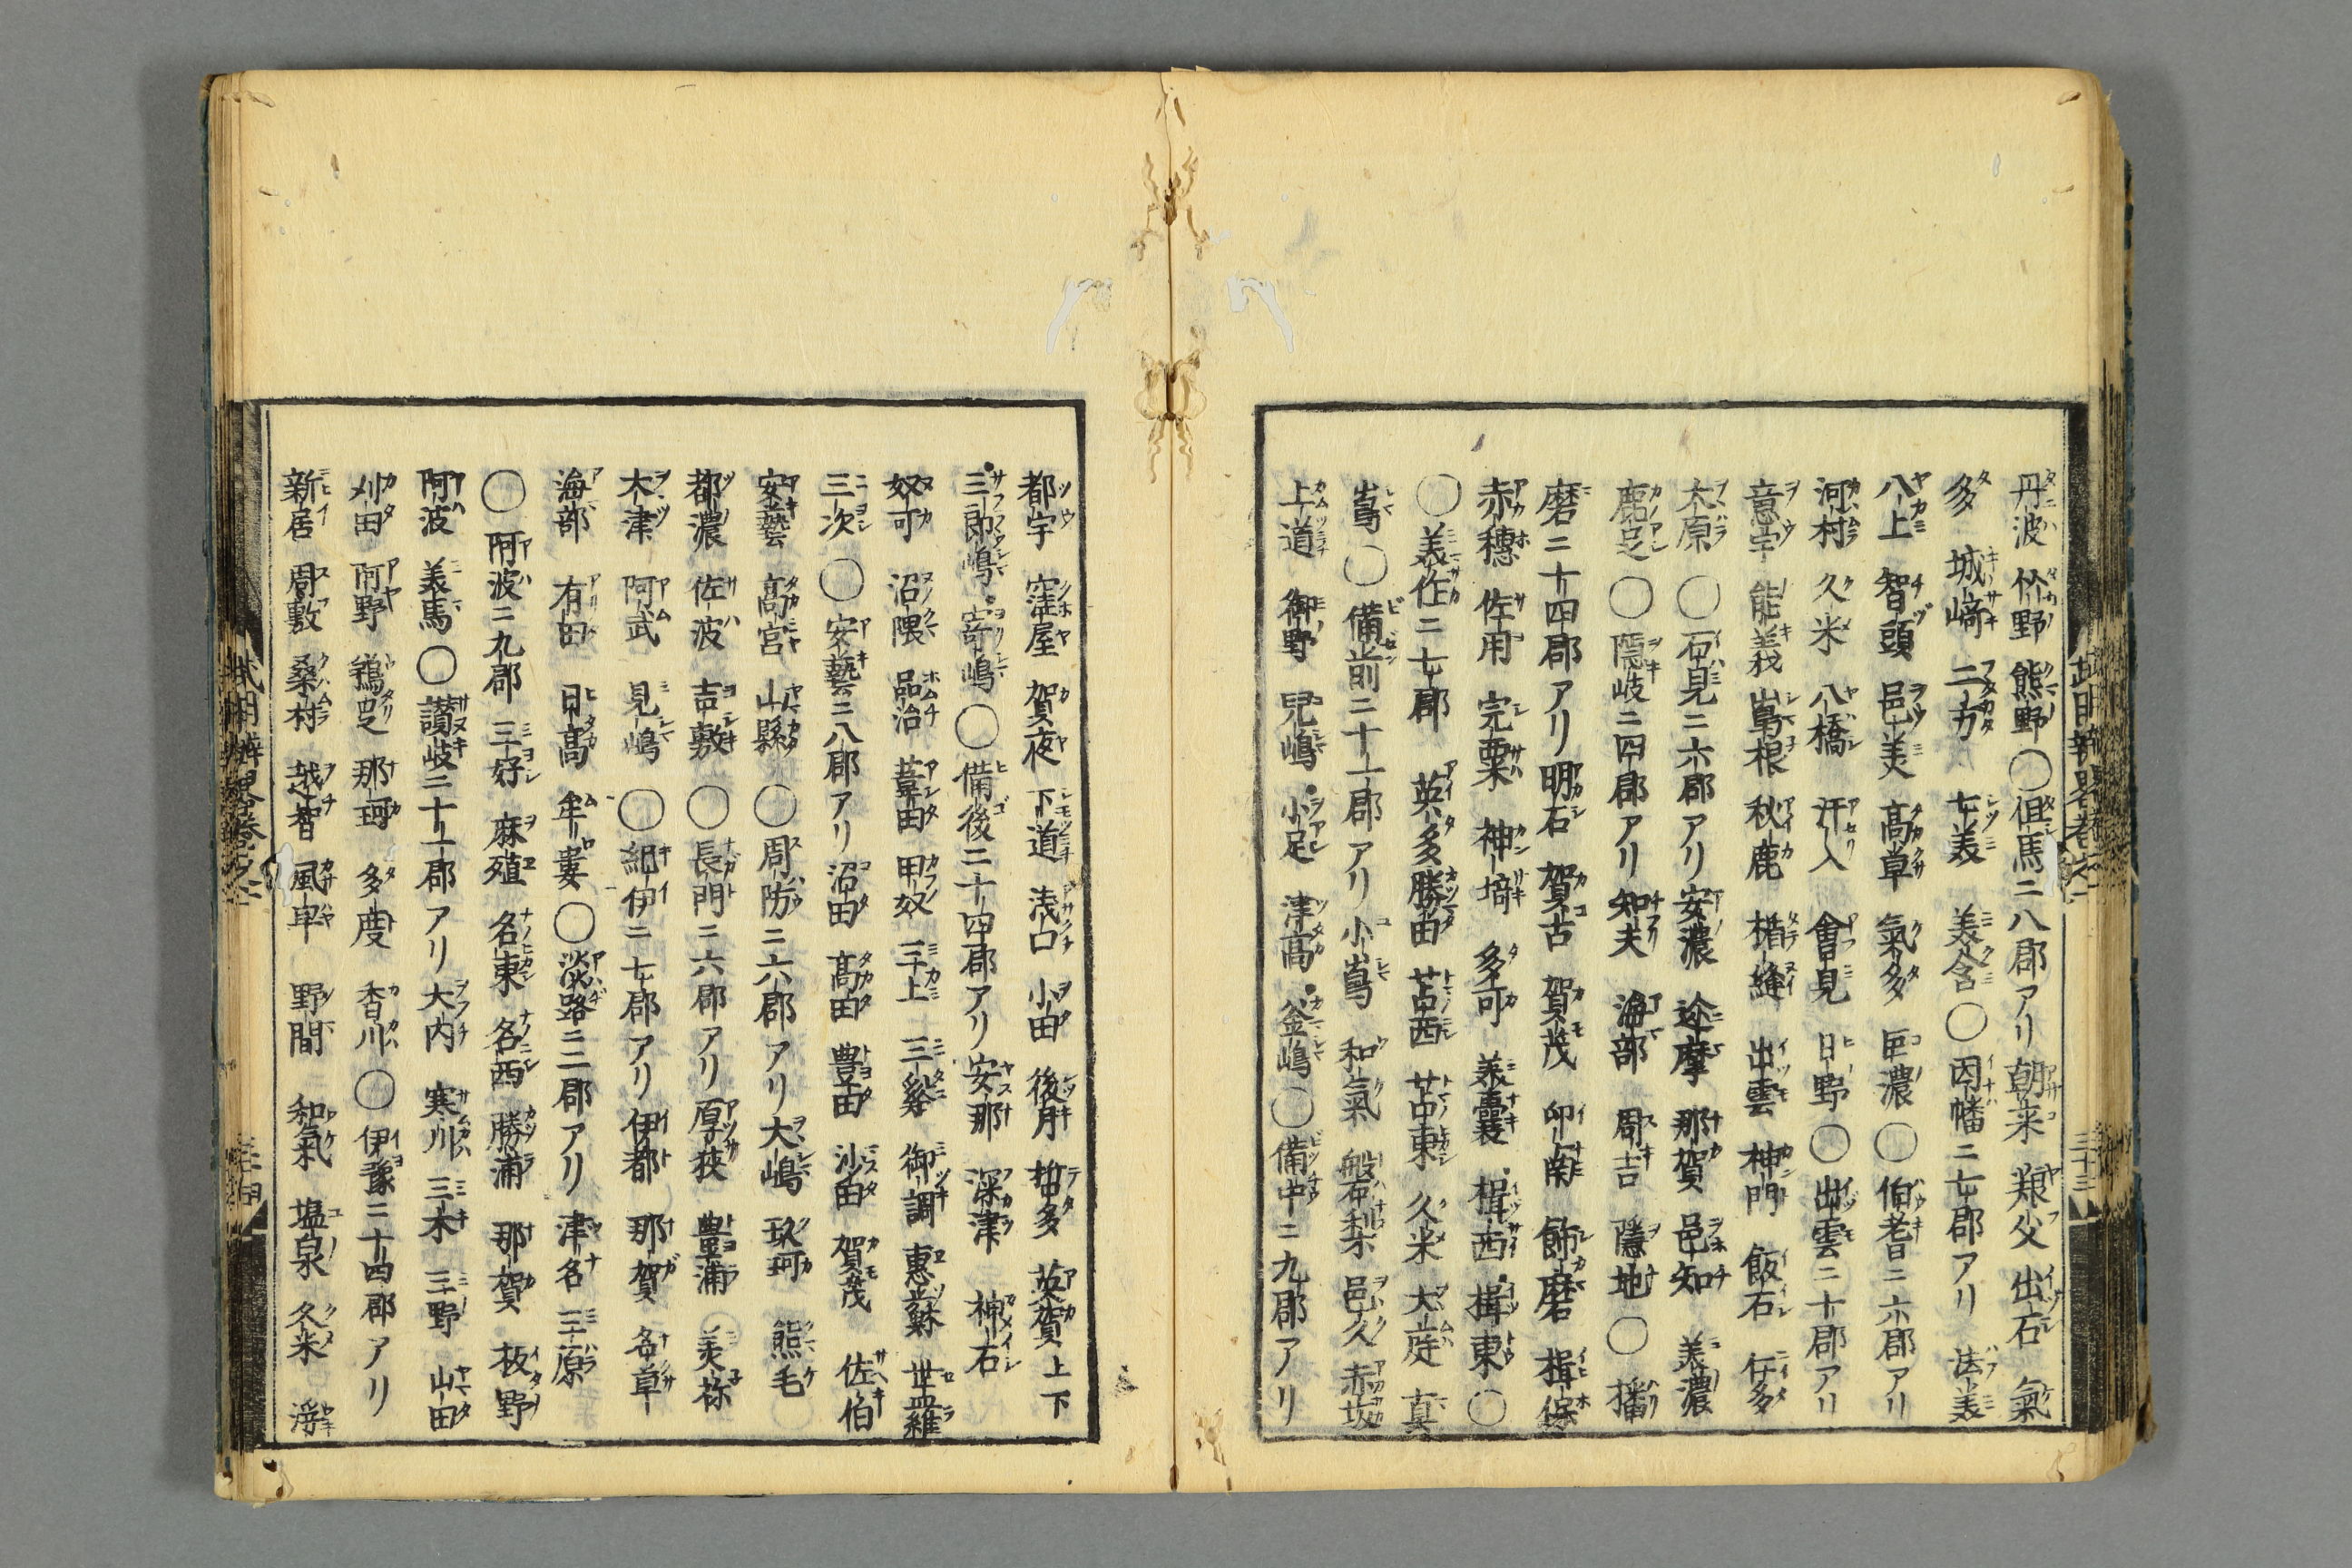 丹波 竹野 熊野 〇但馬ニ八郡アリ 朝来 養父 出石 氣
多 城﨑 二方 七美 美含 〇因幡ニ七郡アリ 法美
八上 智頭 邑美 髙草 氣多 巨濃 〇伯耆ニ六郡アリ
河村 久米 八橋 汗入 會見 日野 〇出雲ニ十郡アリ
意宇 能義 嶋根 秋鹿 楯縫 出雲 神門 飯石 仁多
大原 〇石見ニ六郡アリ 安濃 迩摩 那賀 邑知 美濃
鹿足 〇隱岐ニ四郡アリ 知夫 海部 周吉 隱地 〇播
磨ニ十四郡アリ 明石 賀古 賀茂 印南 飾磨 揖保
赤穗 佐用 完粟 神埼 多可 美囊 揖西 揖東 〇
〇美作ニ七郡 英多 勝田 苫西 苫東 久米 大庭 真
嶌 〇備前ニ十一郡アリ 小嶌 和氣 磐梨 邑久 赤坂
上道 御野 兒嶋 小足 津髙 釜嶋 〇備中ニ九郡アリ
三十三
都宇 窪屋 賀夜 下道 浅口 小田 後月 哲多 英賀上下
三郎嶋 寄嶋 〇備後ニ十四郡アリ 安那 深津 神石
奴可 沼隈 品治 葦田 甲奴 三上 三谿 御調 惠蘇 世羅
三次 〇安藝ニ八郡アリ 沼田 髙田 豊田 沙田 賀茂 佐伯
安藝 髙宮 山縣 〇周防ニ六郡アリ 大嶋 玖珂 熊毛
都濃 佐波 吉敷 〇長門ニ六郡アリ 厚狭 豊浦 美祢
大津 阿武 見嶋 〇紀伊ニ七郡アリ 伊都 那賀 名草
海部 有田 日髙 牟婁 〇淡路ニ二郡アリ 津名 三原
〇阿波ニ九郡 三好 麻殖 名東 名西 勝浦 那賀 板野
阿波 美馬 〇讃岐ニ十一郡アリ 大内 寒川 三木 三野 山田
刈田 阿野 鵜足 那珂 多度 香川 〇伊豫ニ十四郡アリ
新居 周敷 桑村 越智 風早 野間 和氣 塩泉 久米 浮